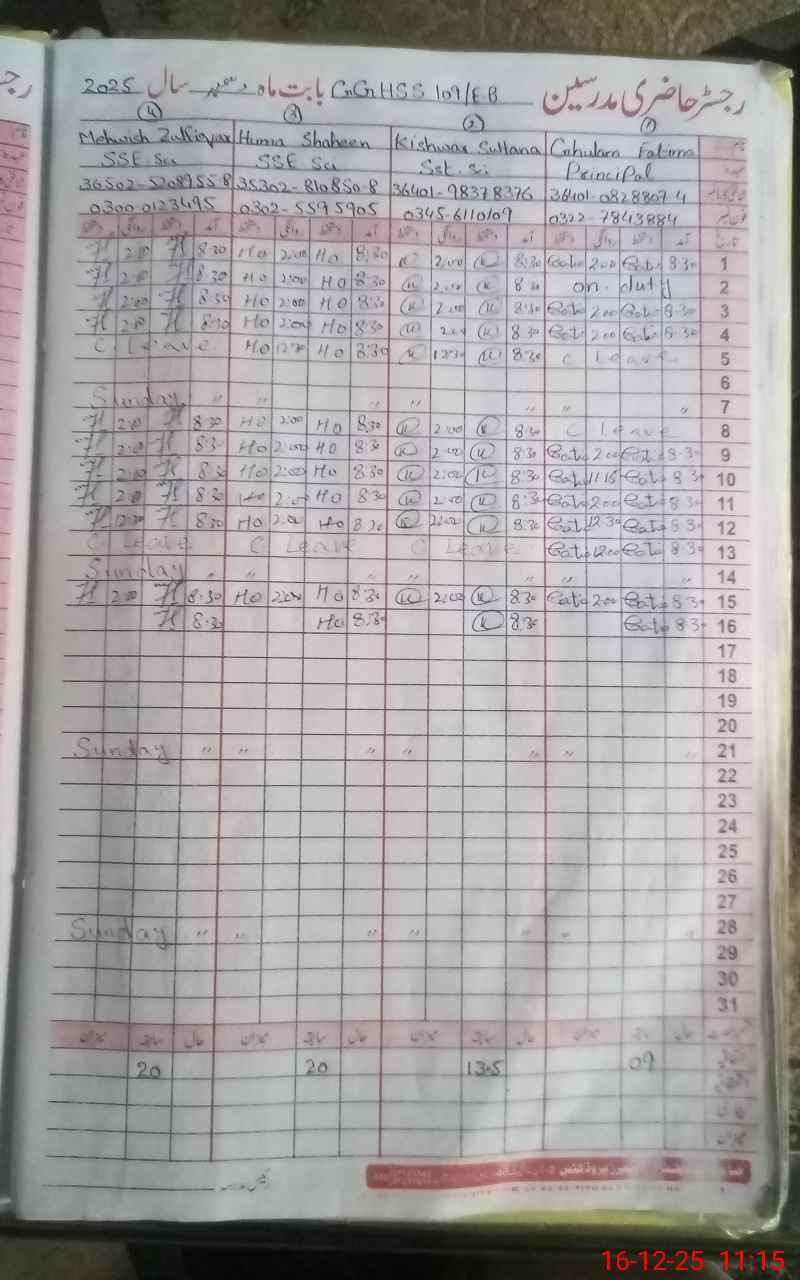 رجسٹر حاضری مدرسین GGHSS 109/E.B بابت ماہ دسمبر سال 2025
① ② ③ ④
نام Ghulam Fatima Kishwar Sultana Huma Shaheen Mehwish Zulfiqar
عہدہ Principal Sst. Sci SSE Sci SSE. Sci
36401-0828807-4 36401-98378376 35302-810850-8 36502-5208955 8
فون نمبر 0322-7843884 0345-6110109 0302-5595905 0300-0123495
تاریخ آمد دستخط روانگی دستخط آمد دستخط روانگی دستخط آمد دستخط روانگی دستخط آمد دستخط روانگی دستخط
H 2:00 H 8:30 Ho 2:00 Ho 8:30 K 2:00 K 8:30 Gati 2:00 Gati 8:30 1
H 2:00 H 8:30 Ho 2:00 Ho 8:30 K 2:00 K 8:30 on duty 2
H 2:00 H 8:30 Ho 2:00 Ho 8:30 K 2:00 K 8:30 Gati 2:00 Gati 8:30 3
H 2:00 H 8:30 Ho 2:00 Ho 8:30 K 2:00 K 8:30 Gati 2:00 Gati 8:30 4
C leave Ho 12:30 Ho 8:30 K 12:30 K 8:30 C leave 5
6
Sunday " " " " " " " 7
H 2:00 H 8:30 Ho 2:00 Ho 8:30 K 2:00 K 8:30 C leave 8
H 2:00 H 8:30 Ho 2:00 Ho 8:30 K 2:00 K 8:30 Gati 2:00 Gati 8:30 9
H 2:00 H 8:30 Ho 2:00 Ho 8:30 K 2:00 K 8:30 Gati 11:15 Gati 8:30 10
H 2:00 H 8:30 Ho 2:00 Ho 8:30 K 2:00 K 8:30 Gati 2:00 Gati 8:30 11
H 12:30 H 8:30 Ho 2:00 Ho 8:30 K 2:00 K 8:30 Gati 12:30 Gati 8:30 12
C Leave C Leave C Leave Gati 12:00 Gati 8:30 13
Sunday " " " " " " " 14
H 2:00 H 8:30 Ho 2:00 Ho 8:30 K 2:00 K 8:30 Gati 2:00 Gati 8:30 15
H 8:30 Ho 8:30 K 8:30 Gati 8:30 16
17
18
19
20
Sunday " " " " " " " 21
22
23
24
25
26
27
Sunday " " " " " " " 28
29
30
31
حال سابقہ میزان حال سابقہ میزان حال سابقہ میزان حال سابقہ میزان
20 20 13.5 09
میزان
16-12-25 11:15